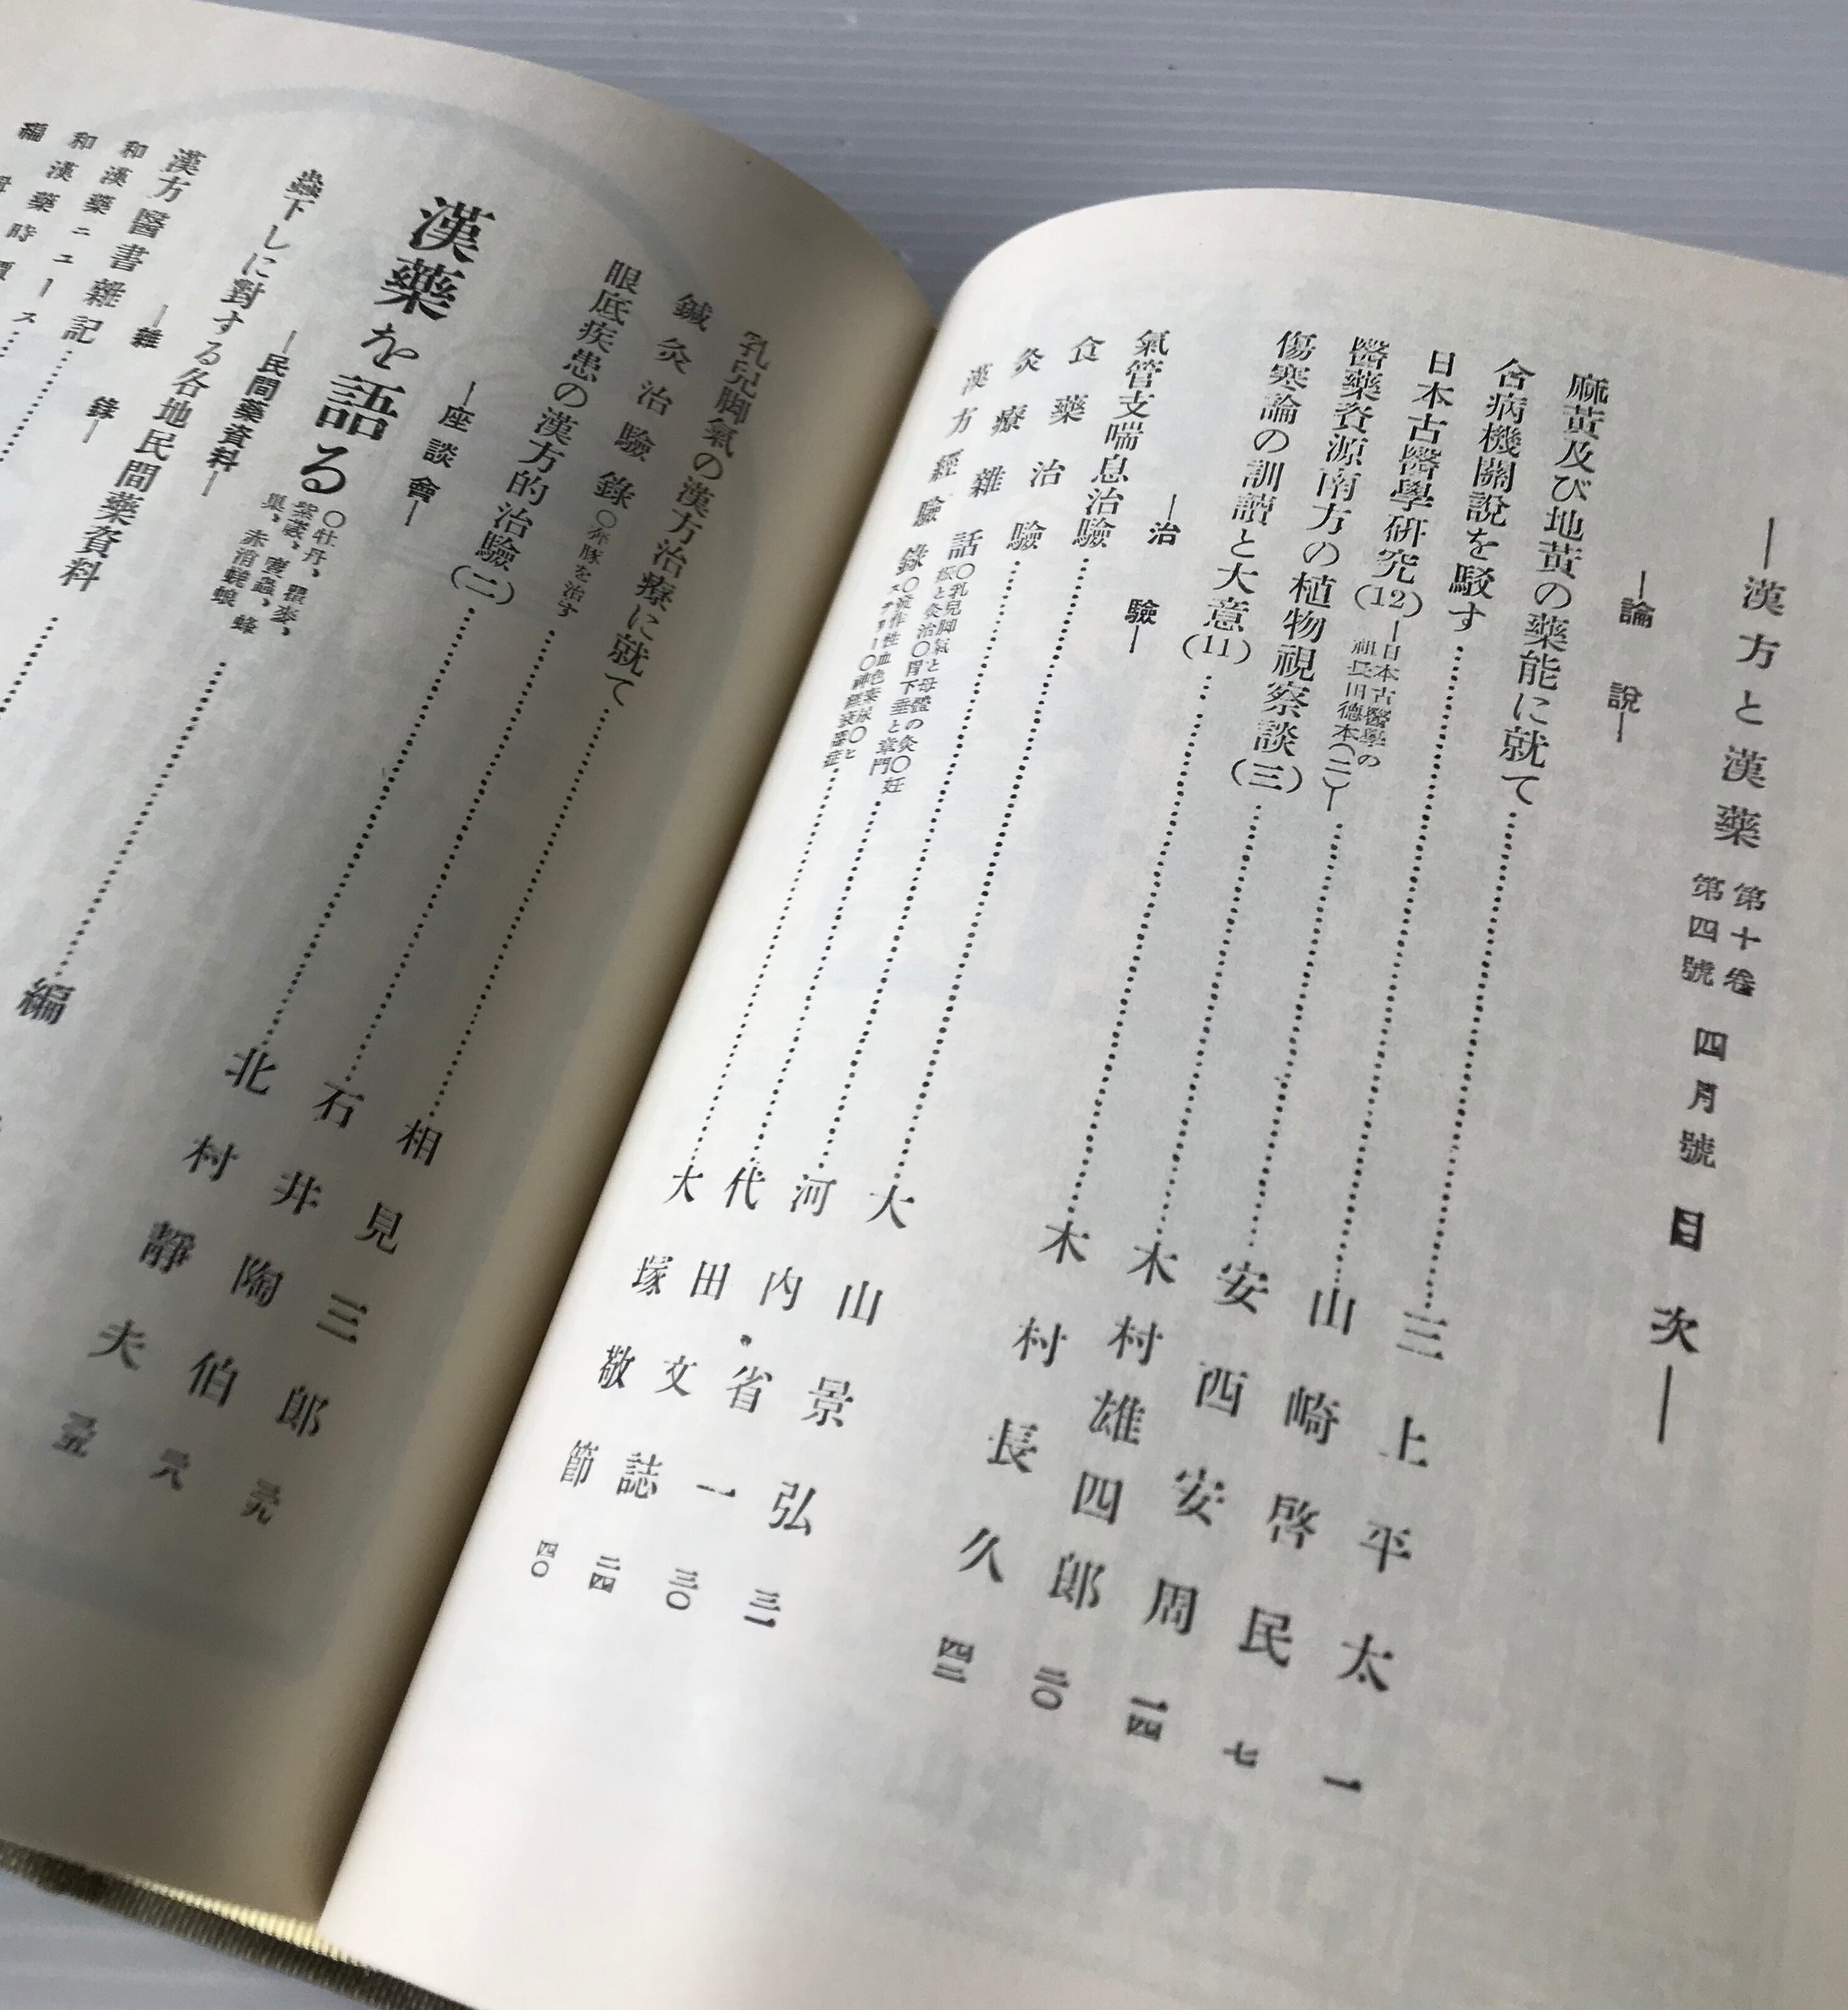 ―漢方と漢藥 第十卷 第四號 四月號 目次―
―論說―
麻黃及び地黃の藥能に就て……三上平太 一
含病機關說を駁す……山崎啓民 七
日本古醫學硏究(12)―日本古醫學の祖長田德本(二)―……安西安周 一四
醫藥資源南方の植物視察談(三)……木村雄四郎 二〇
傷寒論の訓讀と大意(11)……木村長久 四二
―治驗―
氣管支喘息治驗……大山景弘 三一
食藥治驗……河内省一 三〇
灸療雜話〇乳兒脚氣と母體の灸〇妊娠と灸治〇胃下垂と章門……代田文誌 二四
漢方經驗錄……大塚敬節 四〇
乳兒脚氣の漢方治療に就て……相見三郎 三九
鍼灸治驗錄〇奔豚を治す……石井陶伯 三八
眼底疾患の漢方的治驗(二)……北村靜夫 三五
―座談會―
漢藥を語る〇牡丹、瞿麥、紫葳、䗪蟲、蜂巢、赤消蜣蜋
―民間藥資料―
蟲下しに對する各地民間藥資料……編
―雜錄―
漢方醫書雜記
和漢藥ニュース
和漢藥時
編